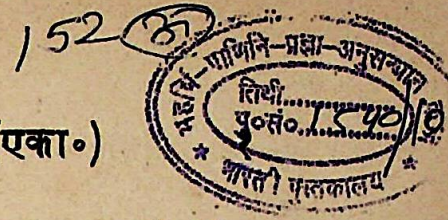 152 (अ)
महर्षि-पाणिनि-प्रज्ञा-अनुसन्धान
तिथी
पु०सं०
एका०)
भारती पुस्तकालय